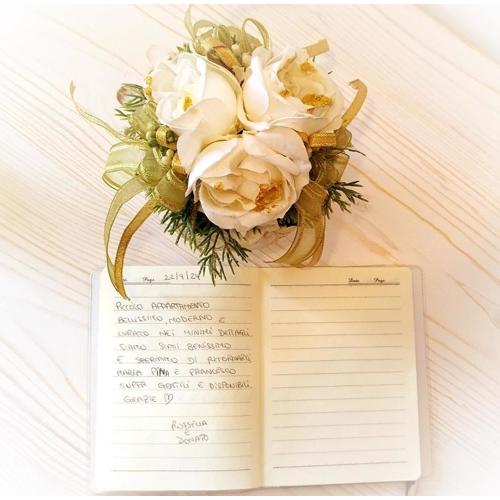 Page 22/9/24
PICCOLO APPARTAMENTO
BELLISSIMO, MODERNO E
CURATO NEI MINIMI DETTAGLI
SIAMO STATI BENISSIMO
E SPERIAMO DI RITORNARCI
MARIA PINA E FRANCESCO
SUPER GENTILI E DISPONIBILI
GRAZIE ♡
ROSSELLA
E
DONATO
Date Page